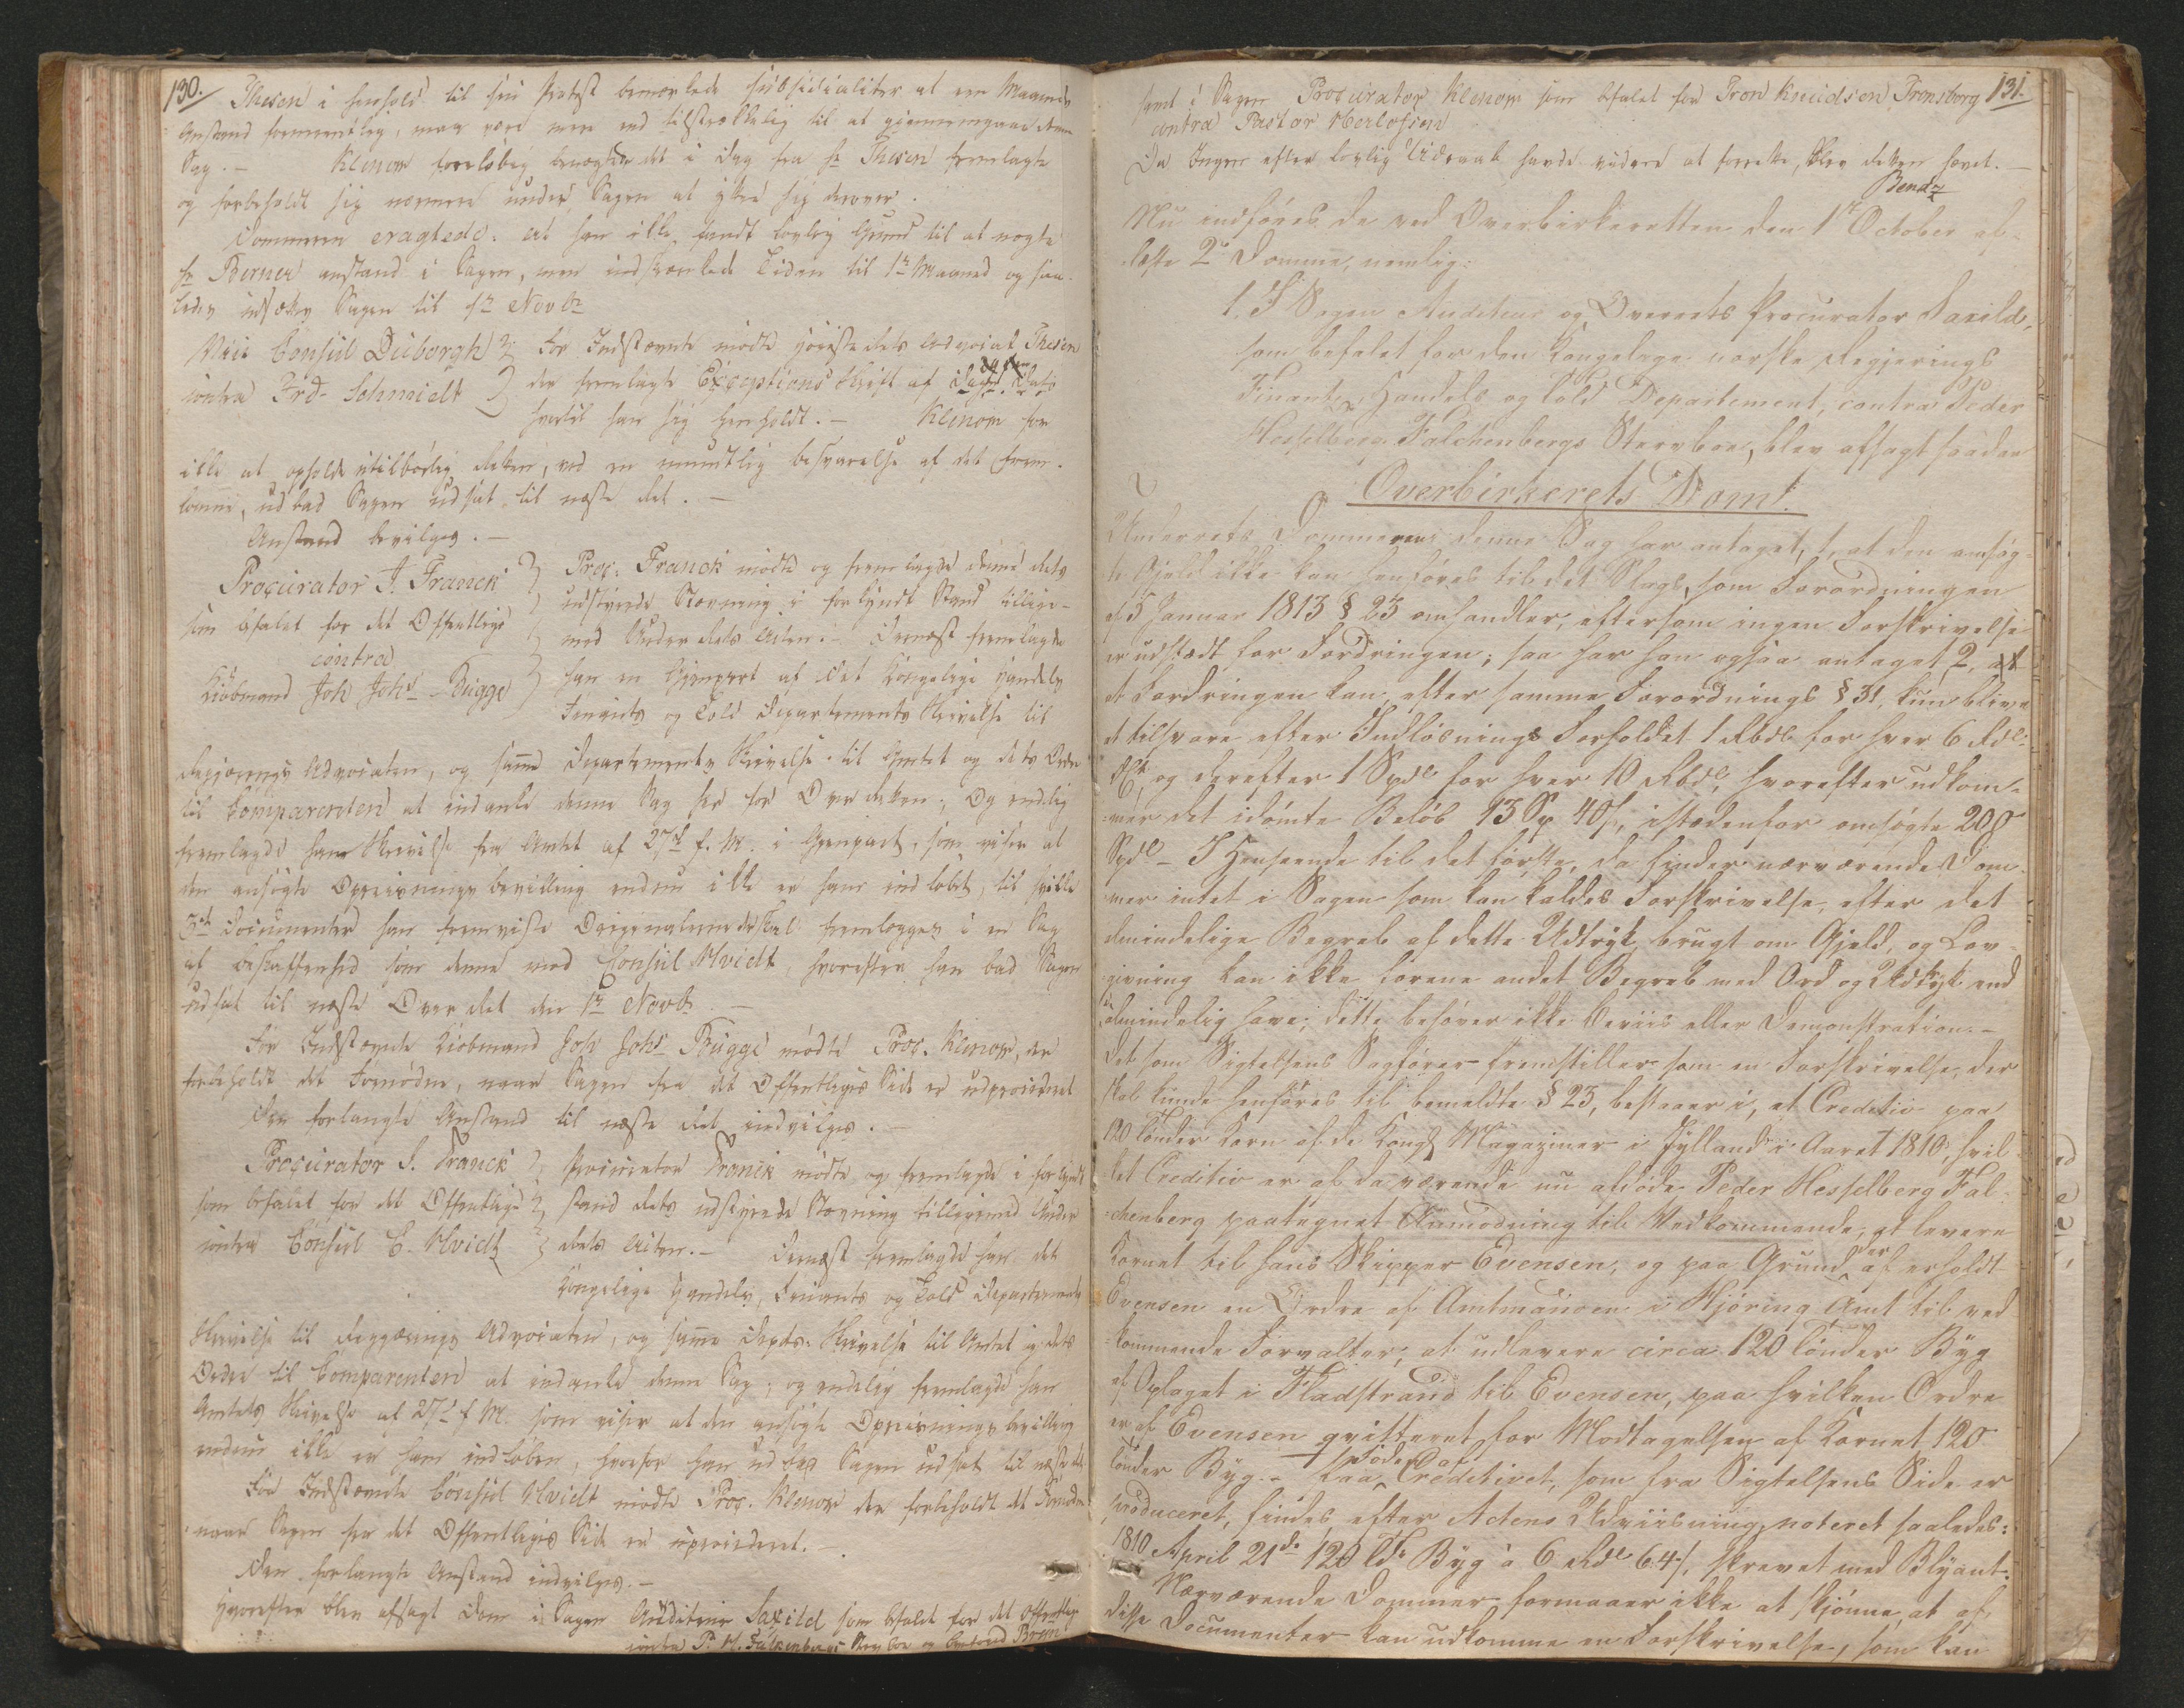 130.
Thesen i henhold til sin Protest bemærkede subsidialiter at een Maaneds
Anstand formeentlig, maa være meer end tilstrækkelig til at gjennemgaae denne
Sag. – Klenow foreløbig benægtede det i Dag fra Hr Thesen fremlagte
og forbeholdt sig nærmere under Sagen at yttre sig derover.
Dommeren eragtede: at han ikke fandt lovlig Grund til at nægte
Hr Berner anstand i Sagen, men indskrænkede Tiden til 1n Maaned og saa-
ledes udsættes Sagen til 1te Novbr
Vice Consul Duborgh
contra Frd- Schmidt
For Indstævnte mødte Høiesterets Advocat Thesen
der fremlagte Exceptions Skrift af Dags Dato
hvortil han sig henholdt. – Klenow for
ikke at opholde utilbørlig Retten, ved en mundtlig besvarelse af det frem-
komne, udbad Sagen udsat til næste Ret. –
Anstand bevilges. –
Procurator J. Franck
som befalet for det Offentlige
contra
Kiøbmand Joh Johs Bugge
Proc. Franck mødte og fremlagde denne Rets
udstyrede Stævning i forkyndt Stand tillige-
med Underrets Acten. – Dernæst fremlagde
han en Gjenpart af det Kongelige Handels
Finants og Told Departements Skrivelse til
Regjerings Advocaten, og samme Departements Skrivelse til Amtet og dets Ordre
til Comparenten at indanke denne Sag her for Over Retten; Og endelig
fremlagde han Skrivelse fra Amtet af 27de f. M. i Gjenpart, som viser at
den ansøgte Opreisnings bevilling endnu ikke er ham indløbet, til hvilke
3de Documenter han foreviste Originalerne der skal fremlægges i en Sag
af beskaffenhed som denne mod Consul Hvidt, hvorefter han bad Sagen
udsat til næste Over Ret den 1te Novbr –
For Indstævnte Kiøbmand Joh Johs Bugge mødte Proc. Klenow, der
forbeholdt det Fornødne, naar Sagen fra det Offentliges Side er udproceduret
Den forlangte Anstand til næste Ret indvilges. –
Procurator J. Franck
som befalet for det Offentlige
contra Consul E. Hvidt
Procurator Franck mødte og fremlagde i forkyndt
stand Rets udstyrede Stævning tilligemed Under
rets Acten. – Dernæst fremlagde han det
Kongelige Handels, Finants og Told Departements
Skrivelse til Regjerings Advocaten, og samme Depts. Skrivelse til Amtet og dets
Ordre til Comparenten at indanke denne Sag; og endelig fremlagde han
Amtets Skrivelse af 27de f. M. som viser at den ansøgte Opreisnings bevilling
endnu ikke er ham indløben, hvorfor han udbad Sagen udsat til næste Ret
For Indstævnte Consul Hvidt mødte Proc. Klenow der forbeholdt det Fornødne
naar Sagen fra det Offentliges Side er uproceduret. –
Den forlangte Anstand indvilges. –
Hvorefter blev afsagt Dom i Sagen Auditeur Saxild som befalet for det Offentlige
contra P. H. Falkenbergs Stervboe og
131.
samt i Sagen Procurator Klenow som befalet for Tron Knudsen Tronsborg
contra Pastor Herlofsen
Da Ingen efter lovlig Udraab havde videre at forrette, blev Retten hævet. –
Bendz
Nu indføres de ved Overbirkeretten den 1te October af-
sagte 2de Domme, nemlig:
1. I Sagen Auditeur og Overrets Procurator Saxild,
som befalet for den Kongelige norske Regjerings
Finants, Handels og Told Departement, contra Peder
Hesselberg Falchenbergs Stervboe, blev afsagt saadan
Overbirkerets Dom:
Underrets Dommeren i denne Sag har antaget, 1, at den omsøg-
te Gjeld ikke kan henføres til det Slags, som Forordningen
af 5 Januar 1813 § 23 omhandler, eftersom ingen Forskrivelse
er udstædt for Fordringen; saa har han ogsaa antaget 2, at
at Fordringen kan efter samme Forordnings § 31, kun blive
at tilsvare efter Indløsnings Forholdet 1 Rbdl for hver 6 Rdl
DC, og derefter 1 Spdl for hver 10 Rbdl, hvorefter udkom-
mer det idømte Beløb 13 Sp 40 s, istedenfor omsøgte 208
Spdl – I Henseende til det første, da finder nærværende Dom-
mer intet i Sagen som kan kaldes Forskrivelse, efter det
almindelige Begreb af dette Udtryk, brugt om Gjeld, og Lov-
givning kan ikke forene andet Begreb med Ord og Udtryk end
almindelig have; dette behøver ikke Beviis eller Demonstration. –
Det som Sigtelsens Sagfører fremstiller som en Forskrivelse, der
skal kunde henføres til bemeldte § 23, bestaaer i, at Creditiv paa
120 Tønder Korn af de Kongl Magaziner i Jylland i Aaret 1810, hvil-
ket Creditiv er af da værende nu afdøde Peder Hesselberg Fal-
chenberg paategnet Anmodning til Vedkommende, at levere
Kornet til hans Skipper Evensen, og paa Grund deraf erholdt
Evensen en Ordre af Amtmanden i Hjøring Amt til ved
kommende Forvalter, at udlevere circa 120 Tønder Byg
af Oplaget i Fladstrand til Evensen, paa hvilken Ordre
er af Evensen qvitteret for Modtagelsen af Kornet 120
Tønder Byg. – Paa Foden af Creditivet, som fra Sigtelsens Side er
produceret, findes efter Actens Udviisning, noteret saaledes:
1810 April 21de 120 Tdr Byg à 6 Rdl 64 s, skrevet med Blyant.
Nærværende Dommer formaaer ikke at skjønne, at af
disse Documenter kan udkomme en Forskrivelse, som kan